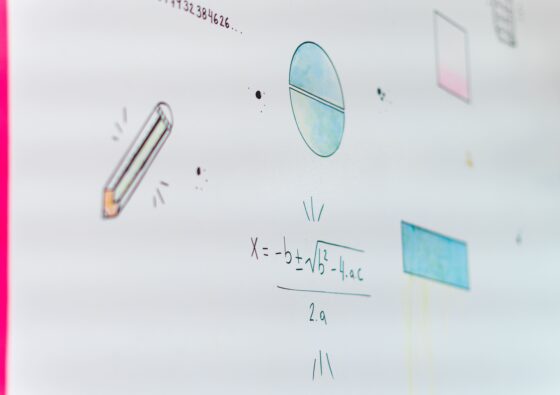 7932384626...
X = -b±√b²-4.ac
2.a